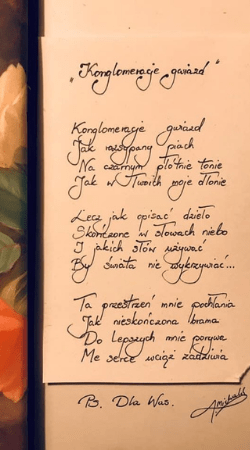 „Konglomeracje gwiazd"
Konglomeracje gwiazd
Jak rozsypany piach
Na czarnym płótnie tonie
Jak w Twoich moje dłonie
Lecz jak opisać dzieło
Skończone w słowach niebo
I jakich słów używać
By świata nie wykrzywiać...
Ta przestrzeń mnie pochłania
Jak nieskończona brama
Do lepszych mnie porywa
Me serce wciąż zadziwia
Ps. Dla Was.